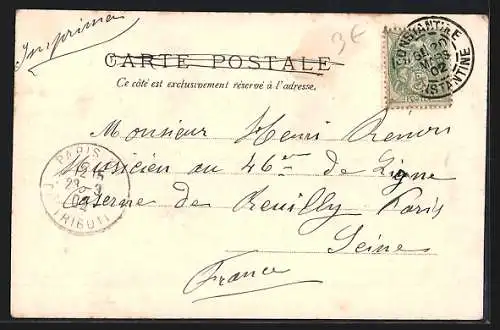 Imprimé
3€
CARTE POSTALE
Ce côté est exclusivement réservé à l'adresse.
CONSTANTINE
MARS
02
CONSTANTINE
Monsieur Henri Renou
Musicien au 46e de Ligne
Caserne de Reuilly Paris
Seine
France
PARIS
DISTRIBUTION